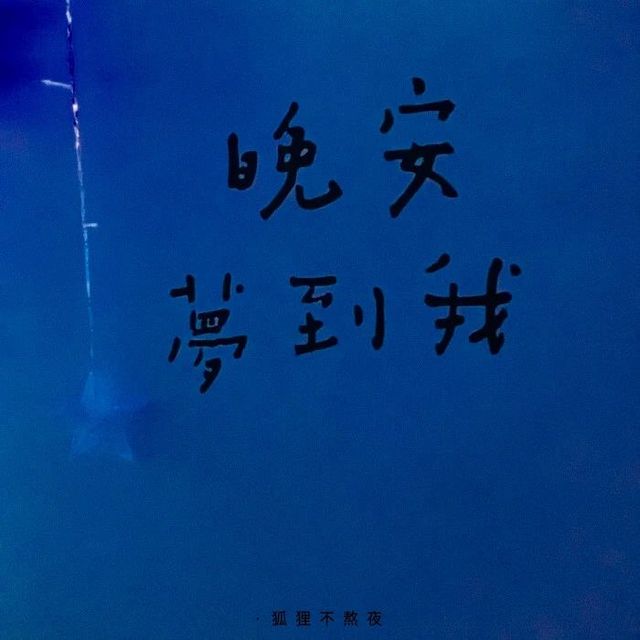 晚安
夢到我
·狐狸不熬夜